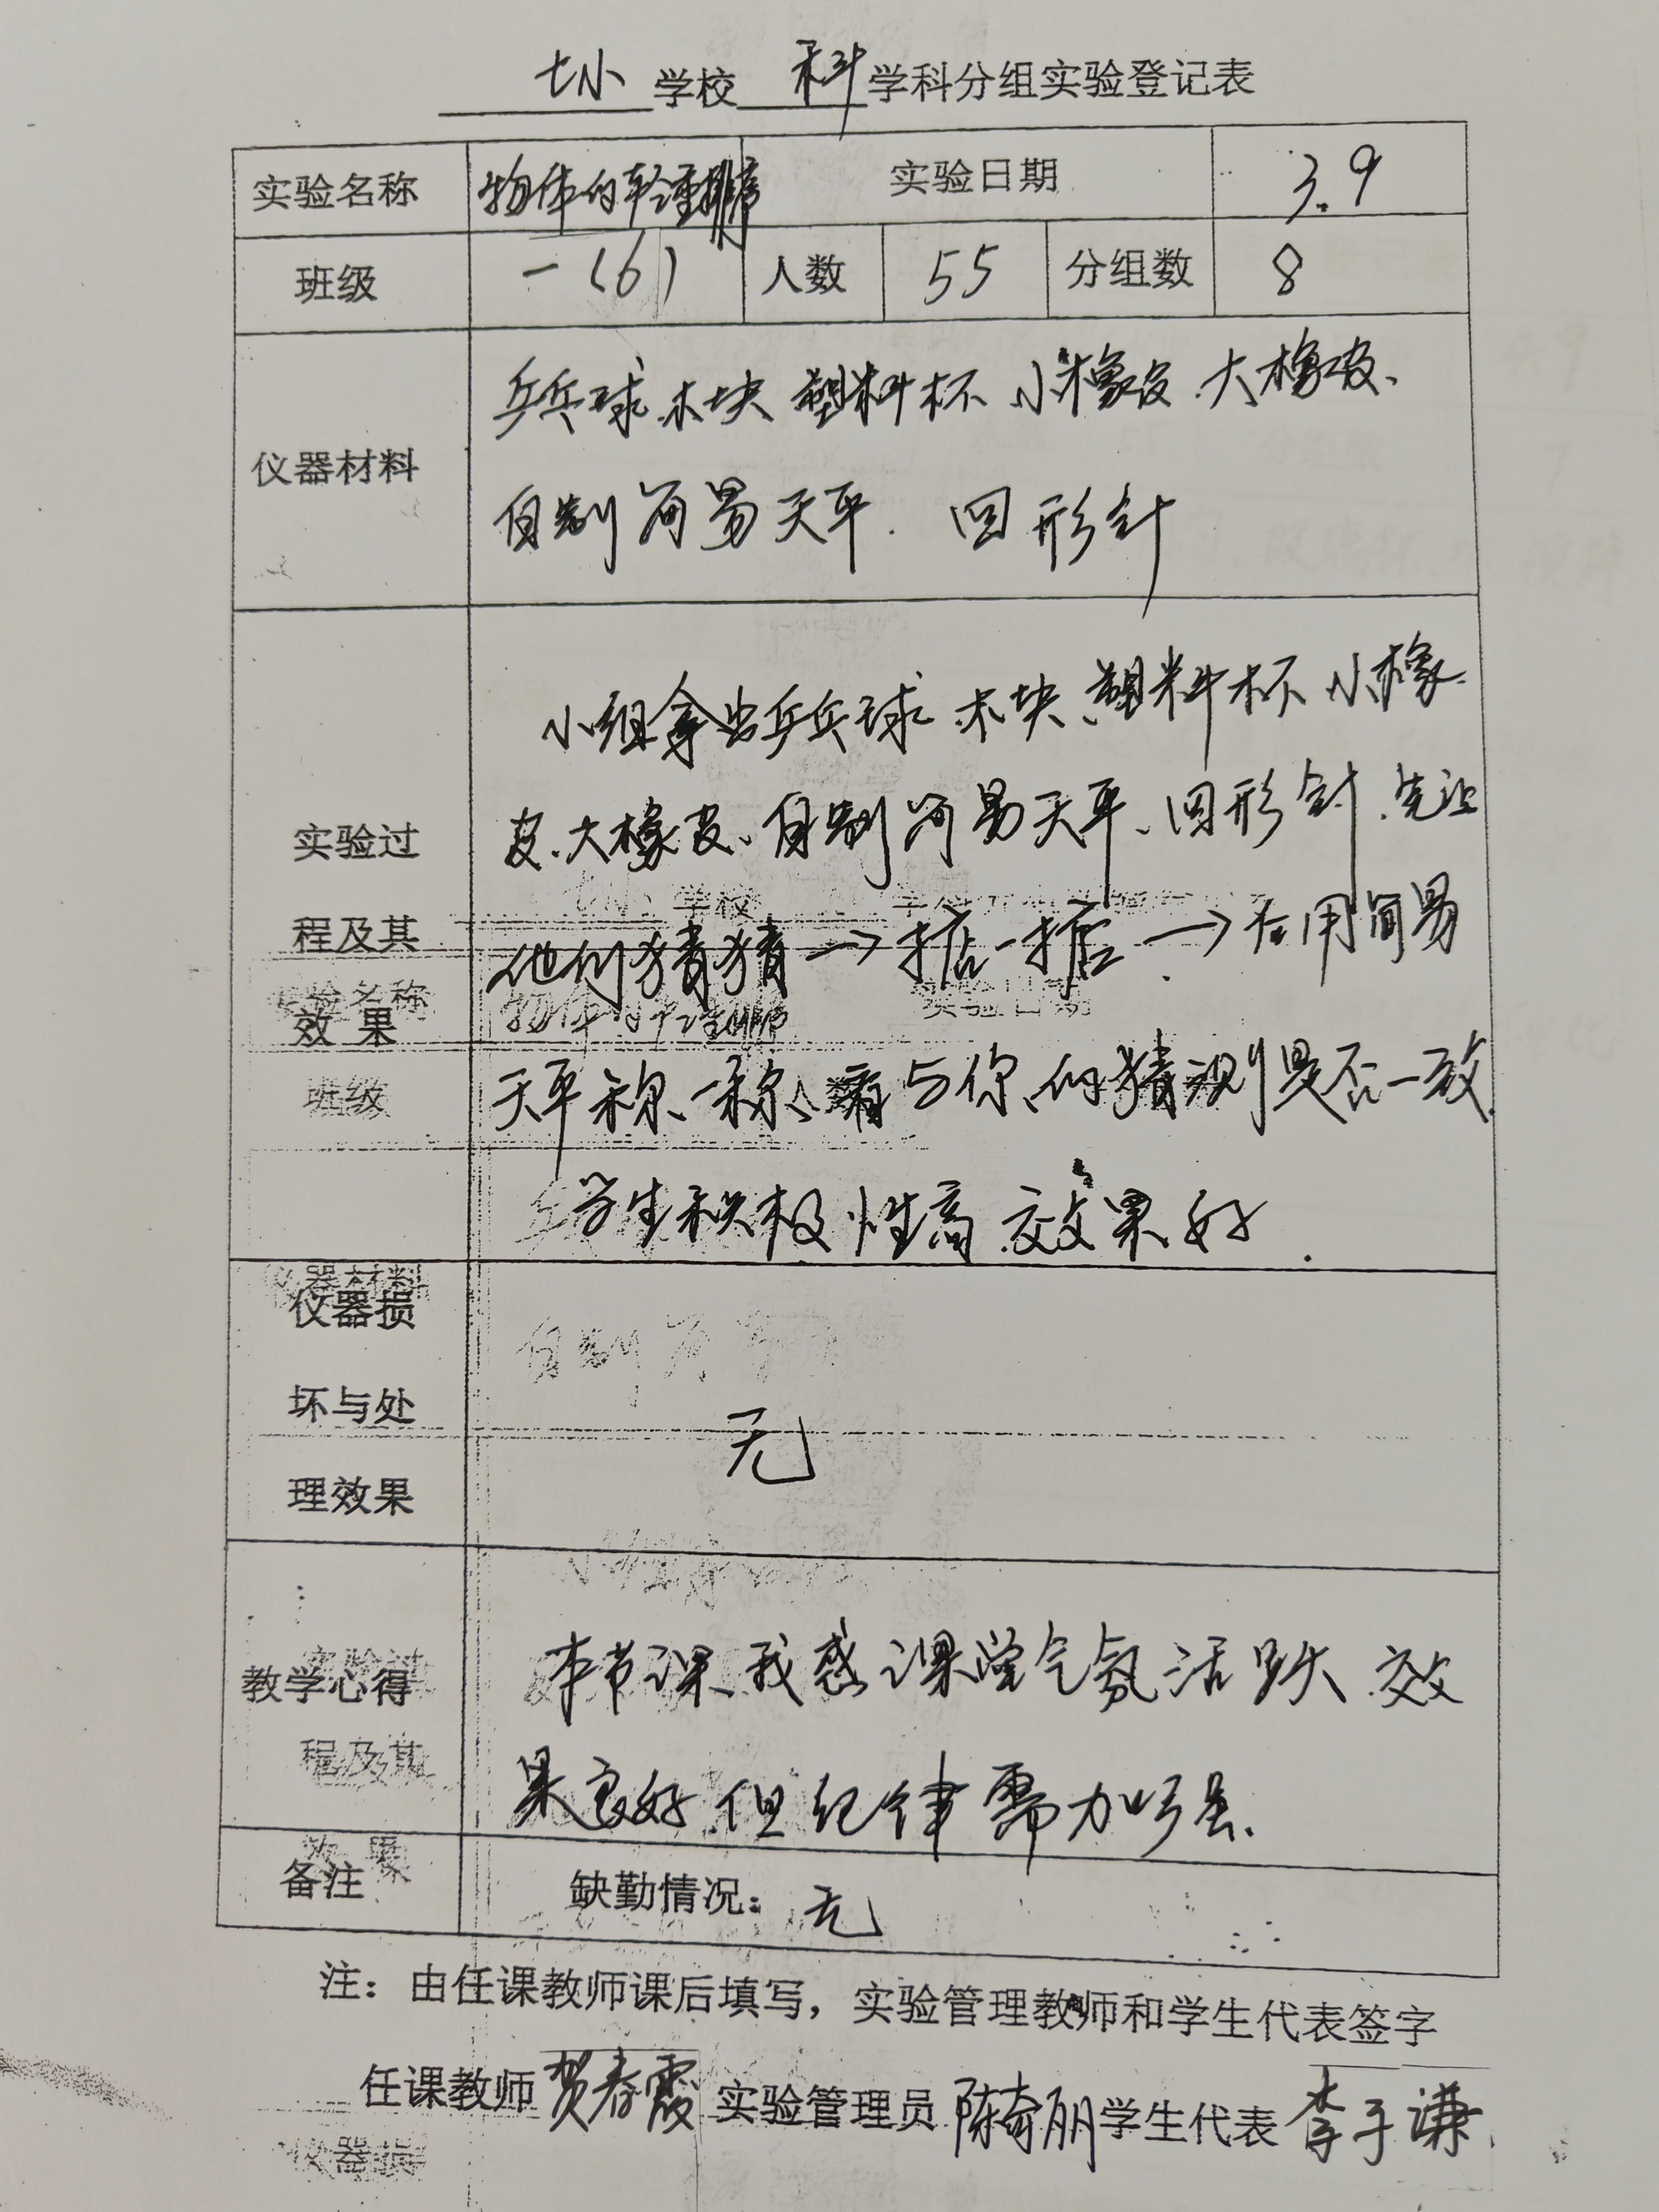 七小学校 科 学科分组实验登记表
实验名称 物体的轻重排序 实验日期 3.9
班级 一(6) 人数 55 分组数 8
仪器材料
乒乓球、木块 塑料杯 小橡皮、大橡皮、
自制简易天平、回形针
实验过
程及其
效 果
小组拿出乒乓球、木块、塑料杯 小橡
皮、大橡皮、自制简易天平、回形针、先让
他们猜猜→掂一掂→在用简易
天平称一称、看与你的猜测是否一致.
学生积极性高、效果好.
仪器损
坏与处
理效果
无
教学心得
本节课、我感课堂气氛活跃、效
果良好、但纪律需加强.
备注 缺勤情况：无
注：由任课教师课后填写，实验管理教师和学生代表签字
任课教师 贺春霞 实验管理员 陈奇丽 学生代表 李子谦
实验名称 物体的轻重排序 实验日期
班级
仪器材料
程及其
仪器损